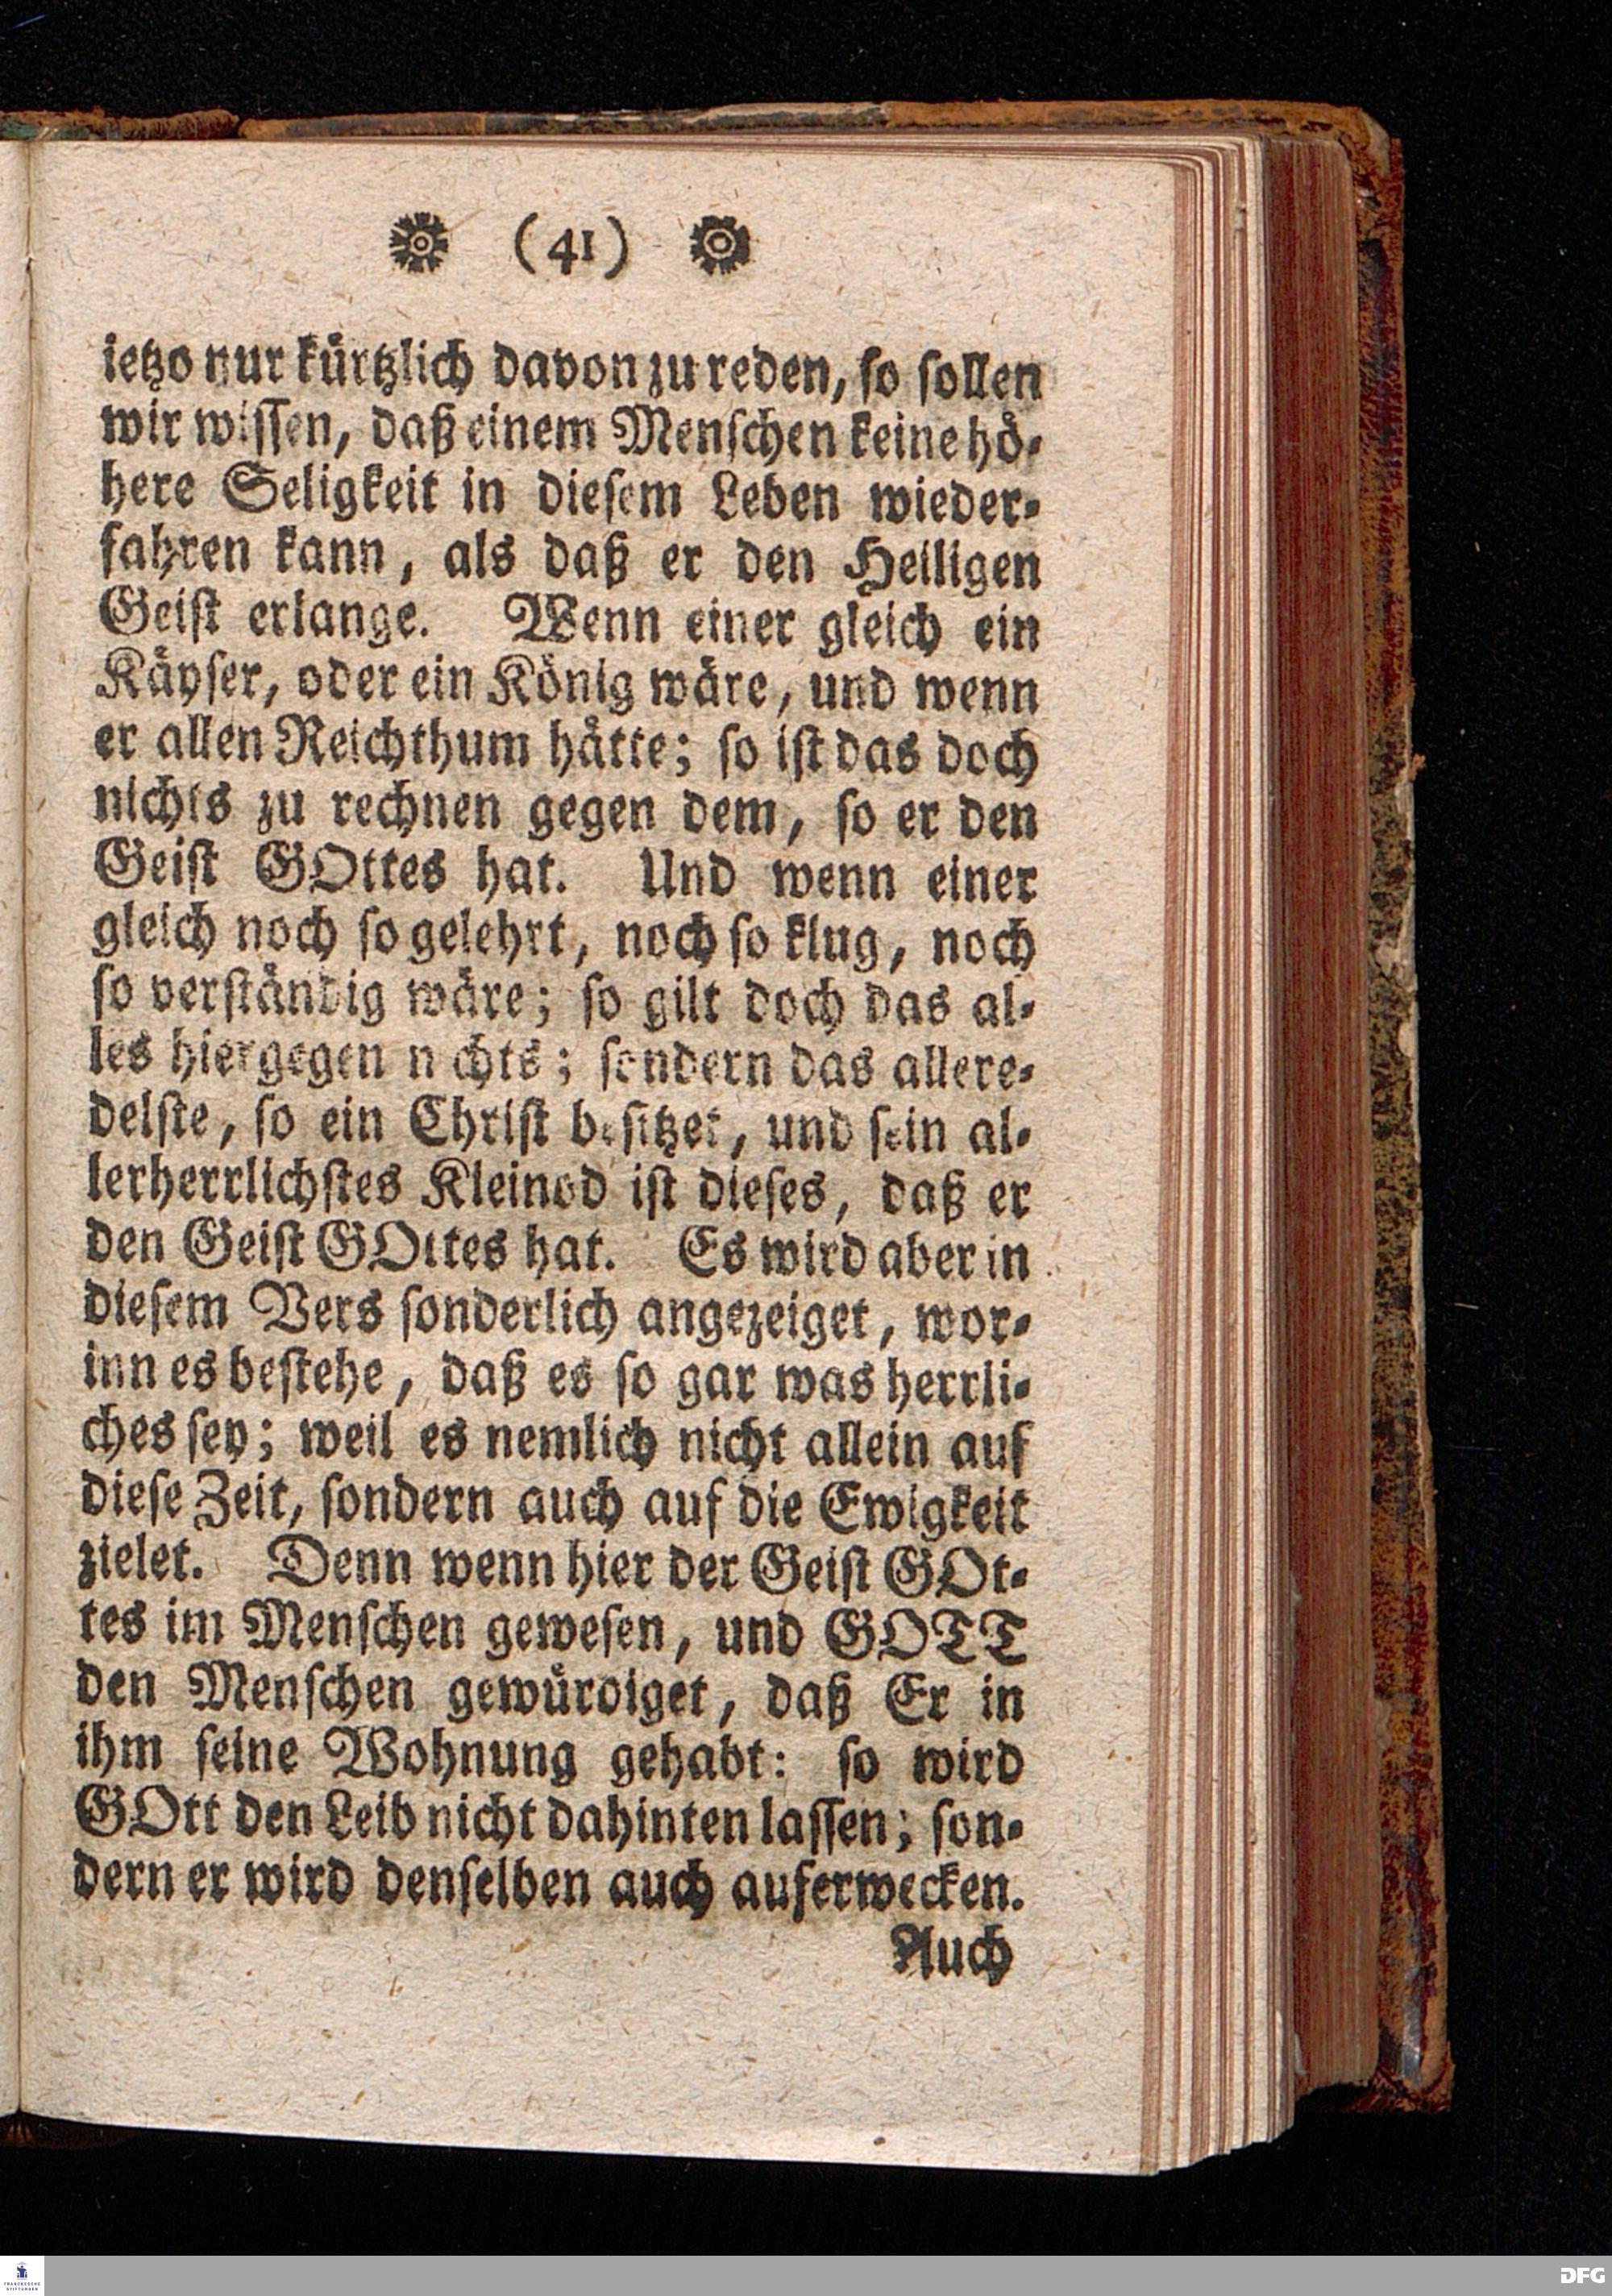 (41)
ietzo nur kürtzlich davon zu reden, so sollen
wir wissen, daß einem Menschen keine hö-
here Seligkeit in diesem Leben wieder-
fahren kann, als daß er den Heiligen
Geist erlange. Wenn einer gleich ein
Käyser, oder ein König wäre, und wenn
er allen Reichthum hätte; so ist das doch
nichts zu rechnen gegen dem, so er den
Geist GOttes hat. Und wenn einer
gleich noch so gelehrt, noch so klug, noch
so verständig wäre; so gilt doch das al-
les hiergegen nichts; sondern das allere-
delste, so ein Christ besitzet, und sein al-
lerherrlichstes Kleinod ist dieses, daß er
den Geist GOttes hat. Es wird aber in
diesem Vers sonderlich angezeiget, wor-
inn es bestehe, daß es so gar was herrli-
ches sey; weil es nemlich nicht allein auf
diese Zeit, sondern auch auf die Ewigkeit
zielet. Denn wenn hier der Geist GOt-
tes im Menschen gewesen, und GOTT
den Menschen gewürdiget, daß Er in
ihm seine Wohnung gehabt: so wird
GOtt den Leib nicht dahinten lassen; son-
dern er wird denselben auch auferwecken.
Auch
FRANCKESCHE
STIFTUNGEN
DFG